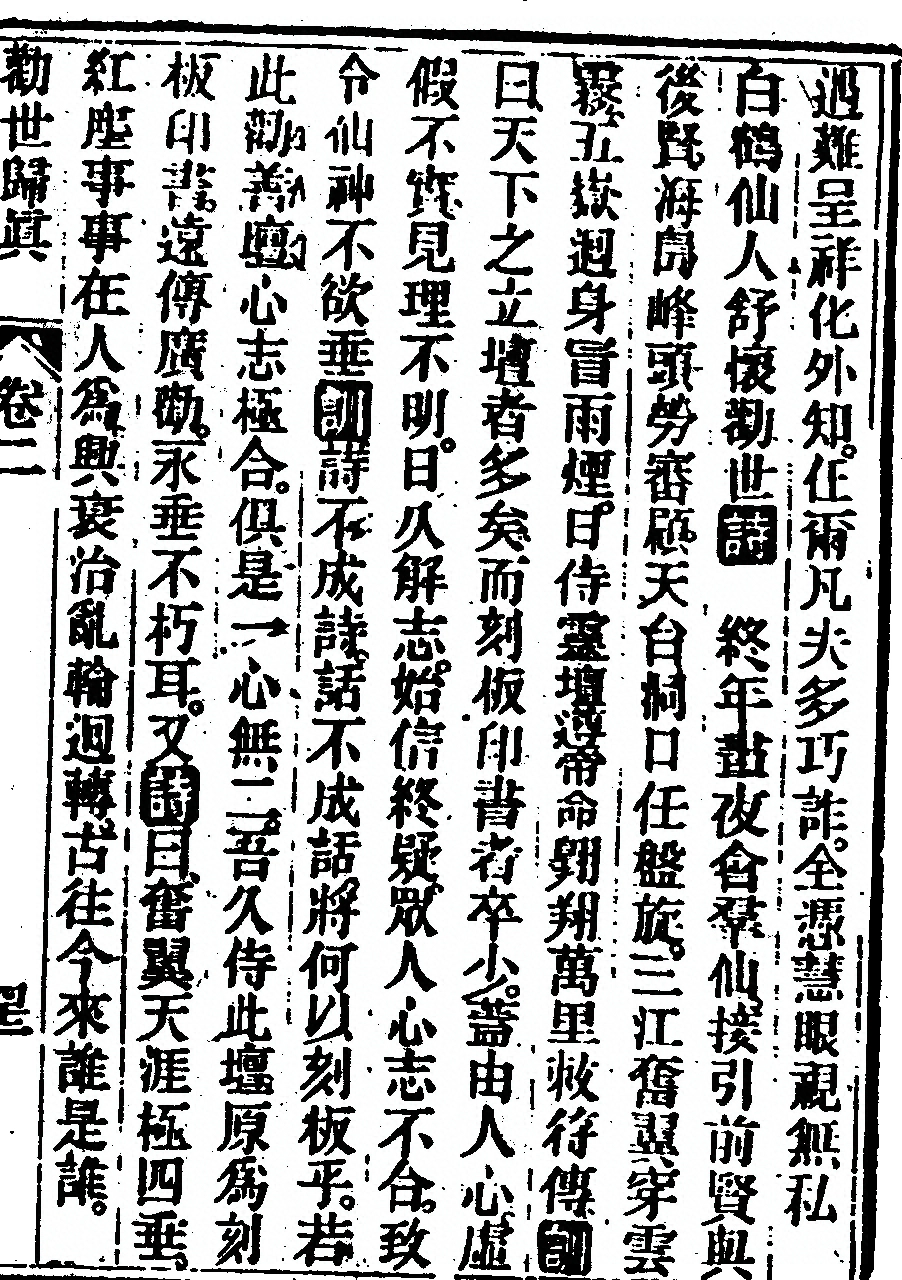 遇難呈祥化外知。任爾凡夫多巧詐。全憑慧眼視無私
白鶴仙人舒懷勸世詩 終年晝夜會羣仙、接引前賢與
後賢海島峰頭勞審顧、天台洞口任盤旋。三江奮翼穿雲
霧、五嶽迴身冒雨煙。日侍靈壇遵帝命翱翔萬里救符傳、訓
曰、天下之立壇者多矣、而刻板印書者卒少。蓋由人心虛
假不實、見理不明。日久解志。始信終疑、眾人心志不合。致
令仙神不欲垂訓詩不成詩、話不成話、將何以刻板乎。若
此勸善壇心志極合。俱是一心無二。吾久侍此壇、原為刻
板印書、遠傳廣勸。永垂不朽耳。又詩曰、奮翼天涯極四垂。
紅塵事事在人為、興衰治亂輪迴轉、古往今來誰是誰。
勸世歸眞 卷二